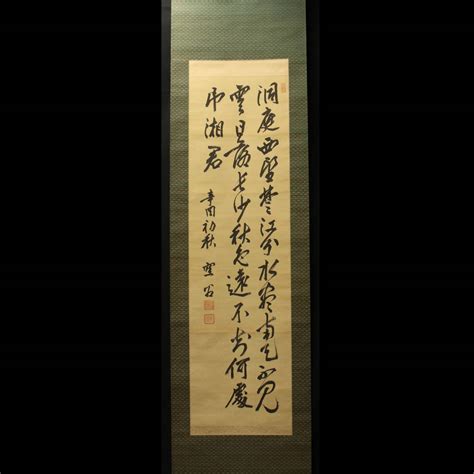 洞庭西望楚江分水盡南天不見
雲日落長沙秋色遠不知何處
吊湘君
辛酉初秋